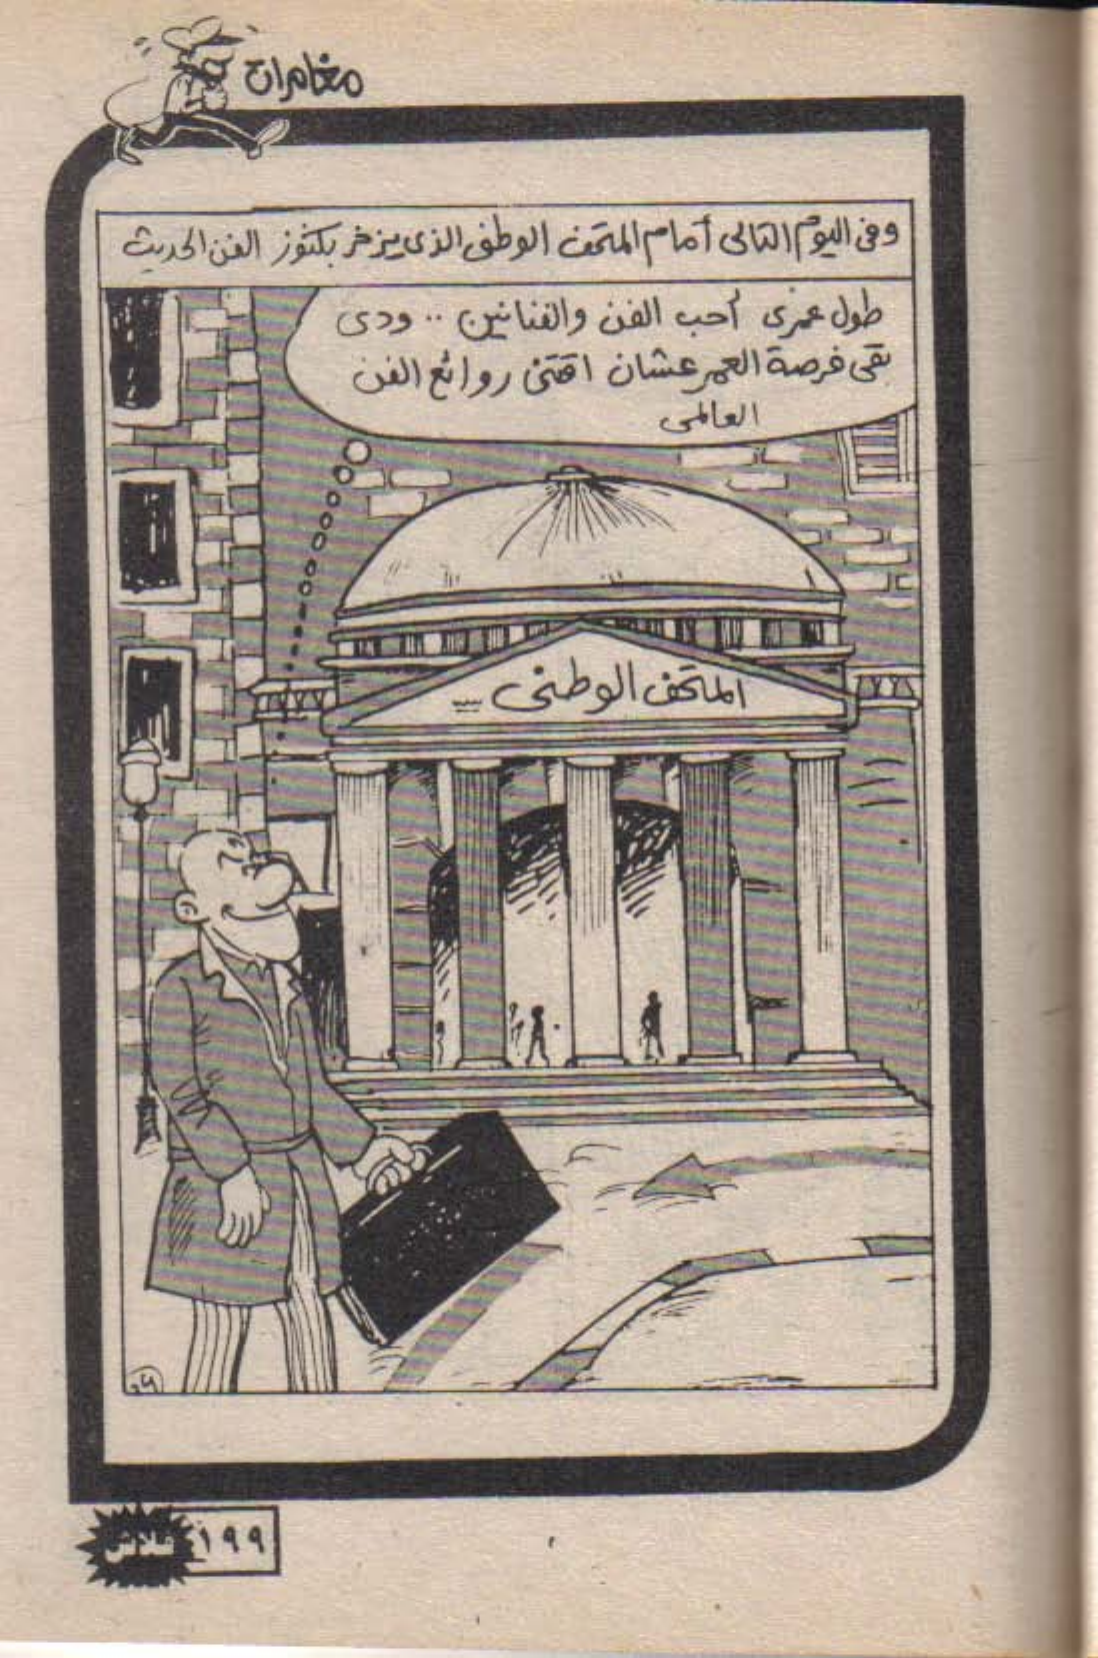 مغامرات
وفى اليوم التالى أمام المتحف الوطنى الذى يزخر بكنوز الفن الحديث
طول عمرى أحب الفن والفنانين .. ودى
بقى فرصة العمر عشان اقتنى روائع الفن
العالمى
المتحف الوطنى
فلاش ١٩٩